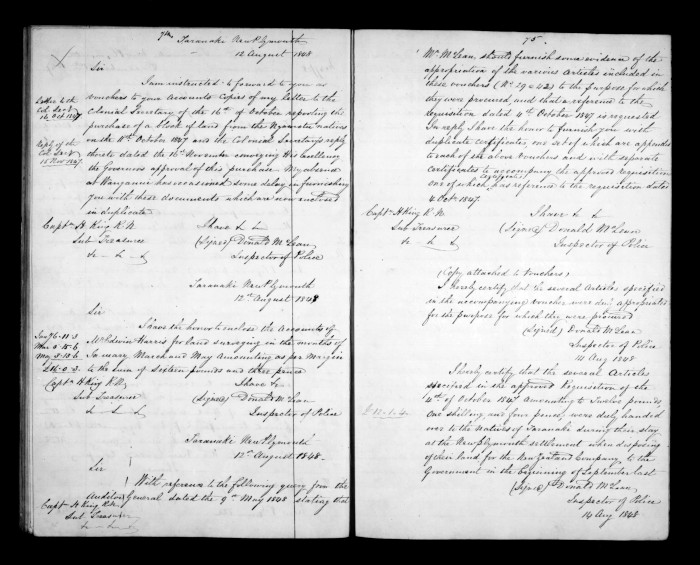 74
Taranaki New Plymouth
12 August 1848
Sir
I am instructed to forward to you as
vouchers to your Accounts Copies of my letter to the
Letter to the
Col Secy
16 Oct 1847
Colonial Secretary of the 16th of October reporting the
purchase of a block of land from the Natives
on the 11th October 1847 and the Colonial Secretary's reply
Reply of the
Col Secy
15 Nov 1847
thereto dated the 15th November conveying His Excellency
the Governors approval of this purchase. My absence
at Wanganui has occasioned some delay in furnishing
you with these documents which are now enclosed
in duplicate
Captn H King R.N.
Sub Treasurer
&c &c &c
I have &c &c
(Signed) Donald McLean
Inspector of Police
Taranaki New Plymouth
12th August 1848
Sir
I have the honor to enclose the Accounts of
Mr Edwin Harris for land surveying in the months of
January March and May amounting as per Margin
to the sum of Sixteen pounds and three pence
Captn H King R.N.
Sub Treasurer
&c &c &c
I have &c
(Signed) Donald McLean
Inspector of Police
Taranaki New Plymouth
12th August 1848
Sir
With reference to the following query from the
Auditor General dated the 9th May 1848 stating that
Captn H King R.N.
Sub Treasurer
&c &c &c
75
Mr McLean should furnish some evidence of the
appropriation of the various Articles included in
these vouchers (Nos 29 & 42) to the purpose for which
they were procured and that a reference to the
requisition dated 4th October 1847 is requested
In reply I have the honor to furnish you with
duplicate certificates, one set of which are appended
to each of the above vouchers and with separate
certificates to accompany the approved requisition
one of which certificates has reference to the requisition dated
4 Octr 1847
Captn H King R.N.
Sub Treasurer
&c &c &c
I have &c &c
(Signed) Donald McLean
Inspector of Police
(Copy attached to Vouchers)
I hereby certify that the several Articles specified
in the accompanying voucher were duly appropriated
for the purpose for which they were procured
(Signed) Donald McLean
Inspector of Police
14 Aug 1848
I hereby certify that the several Articles
specified in the approved Requisition of the
4th of October 1847 amounting to Twelve pounds
£12-1-4
One shilling and four pence, were duly handed
over to the Natives of Taranaki during their stay
at the New Plymouth settlement when disposing
of their land for the New Zealand Company, to the
Government in the beginning of September last
(Signed) Donald McLean
Inspector of Police
14 Aug 1848